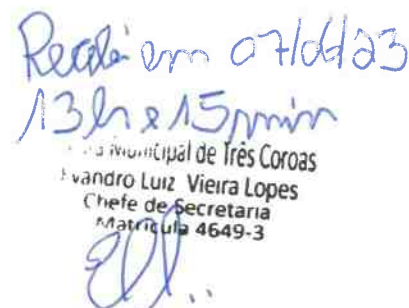 Recebi em 07/06/23
13h e 15min
Municipal de Três Coroas
Evandro Luiz Vieira Lopes
Chefe de Secretaria
Matrícula 4649-3